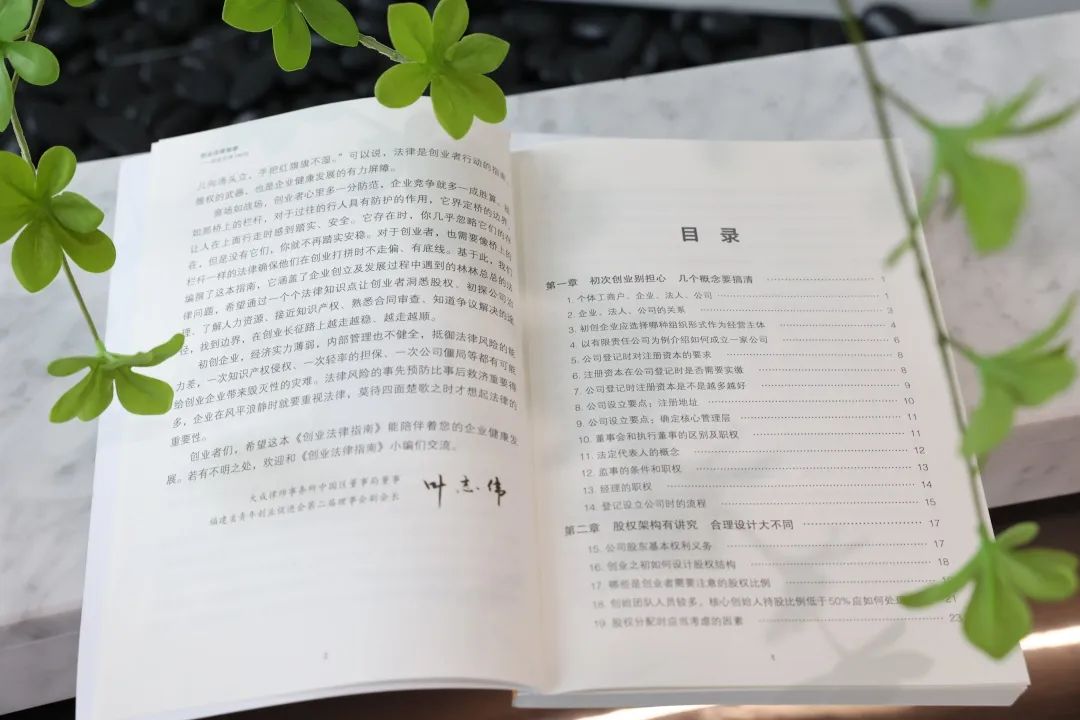 创业法律指南
儿向涛头立,手把红旗旗不湿。”可以说,法律是创业者行动的指南、
维权的武器,也是企业健康发展的有力屏障。
商场如战场,创业者心里多一分防范,企业竞争就多一成胜算。
如那桥上的栏杆,对于过往的行人具有防护的作用,它界定桥的边界,
让人在上面行走时感到踏实、安全。它存在时,你几乎忽略它们的存
在,但是没有它们,你就不再踏实安稳。对于创业者,也需要像桥上的
栏杆一样的法律确保他们在创业打拼时不走偏、有底线。基于此,我们
编撰了这本指南,它涵盖了企业创立及发展过程中遇到的林林总总的法
律问题,希望通过一个个法律知识点让创业者洞悉股权、初探公司治
理、了解人力资源、接近知识产权、熟悉合同审查、知道争议解决的途
径,找到边界,在创业长征路上越走越稳、越走越顺。
初创企业,经济实力薄弱,内部管理也不健全,抵御法律风险的能
力差,一次知识产权侵权、一次轻率的担保、一次公司僵局等都有可能
给创业企业带来毁灭性的灾难。法律风险的事先预防比事后救济重要得
多,企业在风平浪静时就要重视法律,莫待四面楚歌之时才想起法律的
重要性。
创业者们,希望这本《创业法律指南》能陪伴着您的企业健康发
展。若有不明之处,欢迎和《创业法律指南》小编们交流。
大成律师事务所中国区董事局董事
福建省青年创业促进会第二届理事会副会长
叶志伟
2
目 录
第一章 初次创业别担心 几个概念要搞清 1
1. 个体工商户、企业、法人、公司 1
2. 企业、法人、公司的关系 3
3. 初创企业应选择哪种组织形式作为经营主体 4
4. 以有限责任公司为例介绍如何成立一家公司 6
5. 公司登记时对注册资本的要求 8
6. 注册资本在公司登记时是否需要实缴 8
7. 公司登记时注册资本是不是越多越好 9
8. 公司设立要点:注册地址 10
9. 公司设立要点:确定核心管理层 11
10. 董事会和执行董事的区别及职权 11
11. 法定代表人的概念 12
12. 监事的条件和职权 13
13. 经理的职权 14
14. 登记设立公司时的流程 15
第二章 股权架构有讲究 合理设计大不同 17
15. 公司股东基本权利义务 17
16. 创业之初如何设计股权结构 18
17. 哪些是创业者需要注意的股权比例
18. 创始团队人员较多,核心创始人持股比例低于50%应如何处理 21
19. 股权分配时应当考虑的因素 23
1